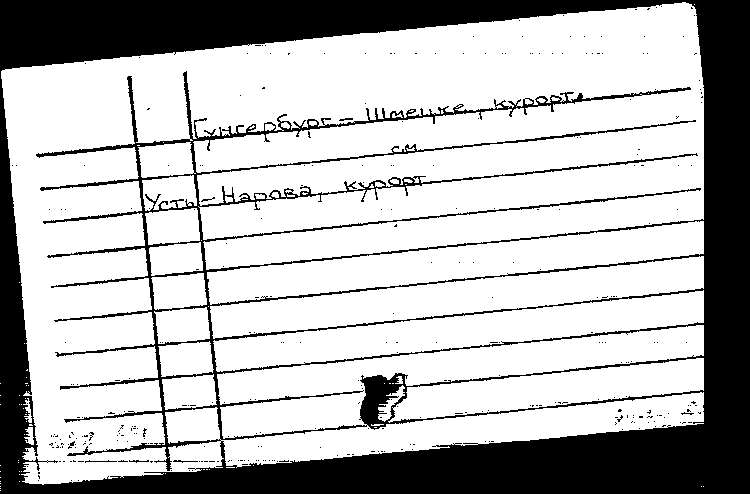 Гунгербург - Шмецке, курорт.
см.
Усть - Нарова, курорт